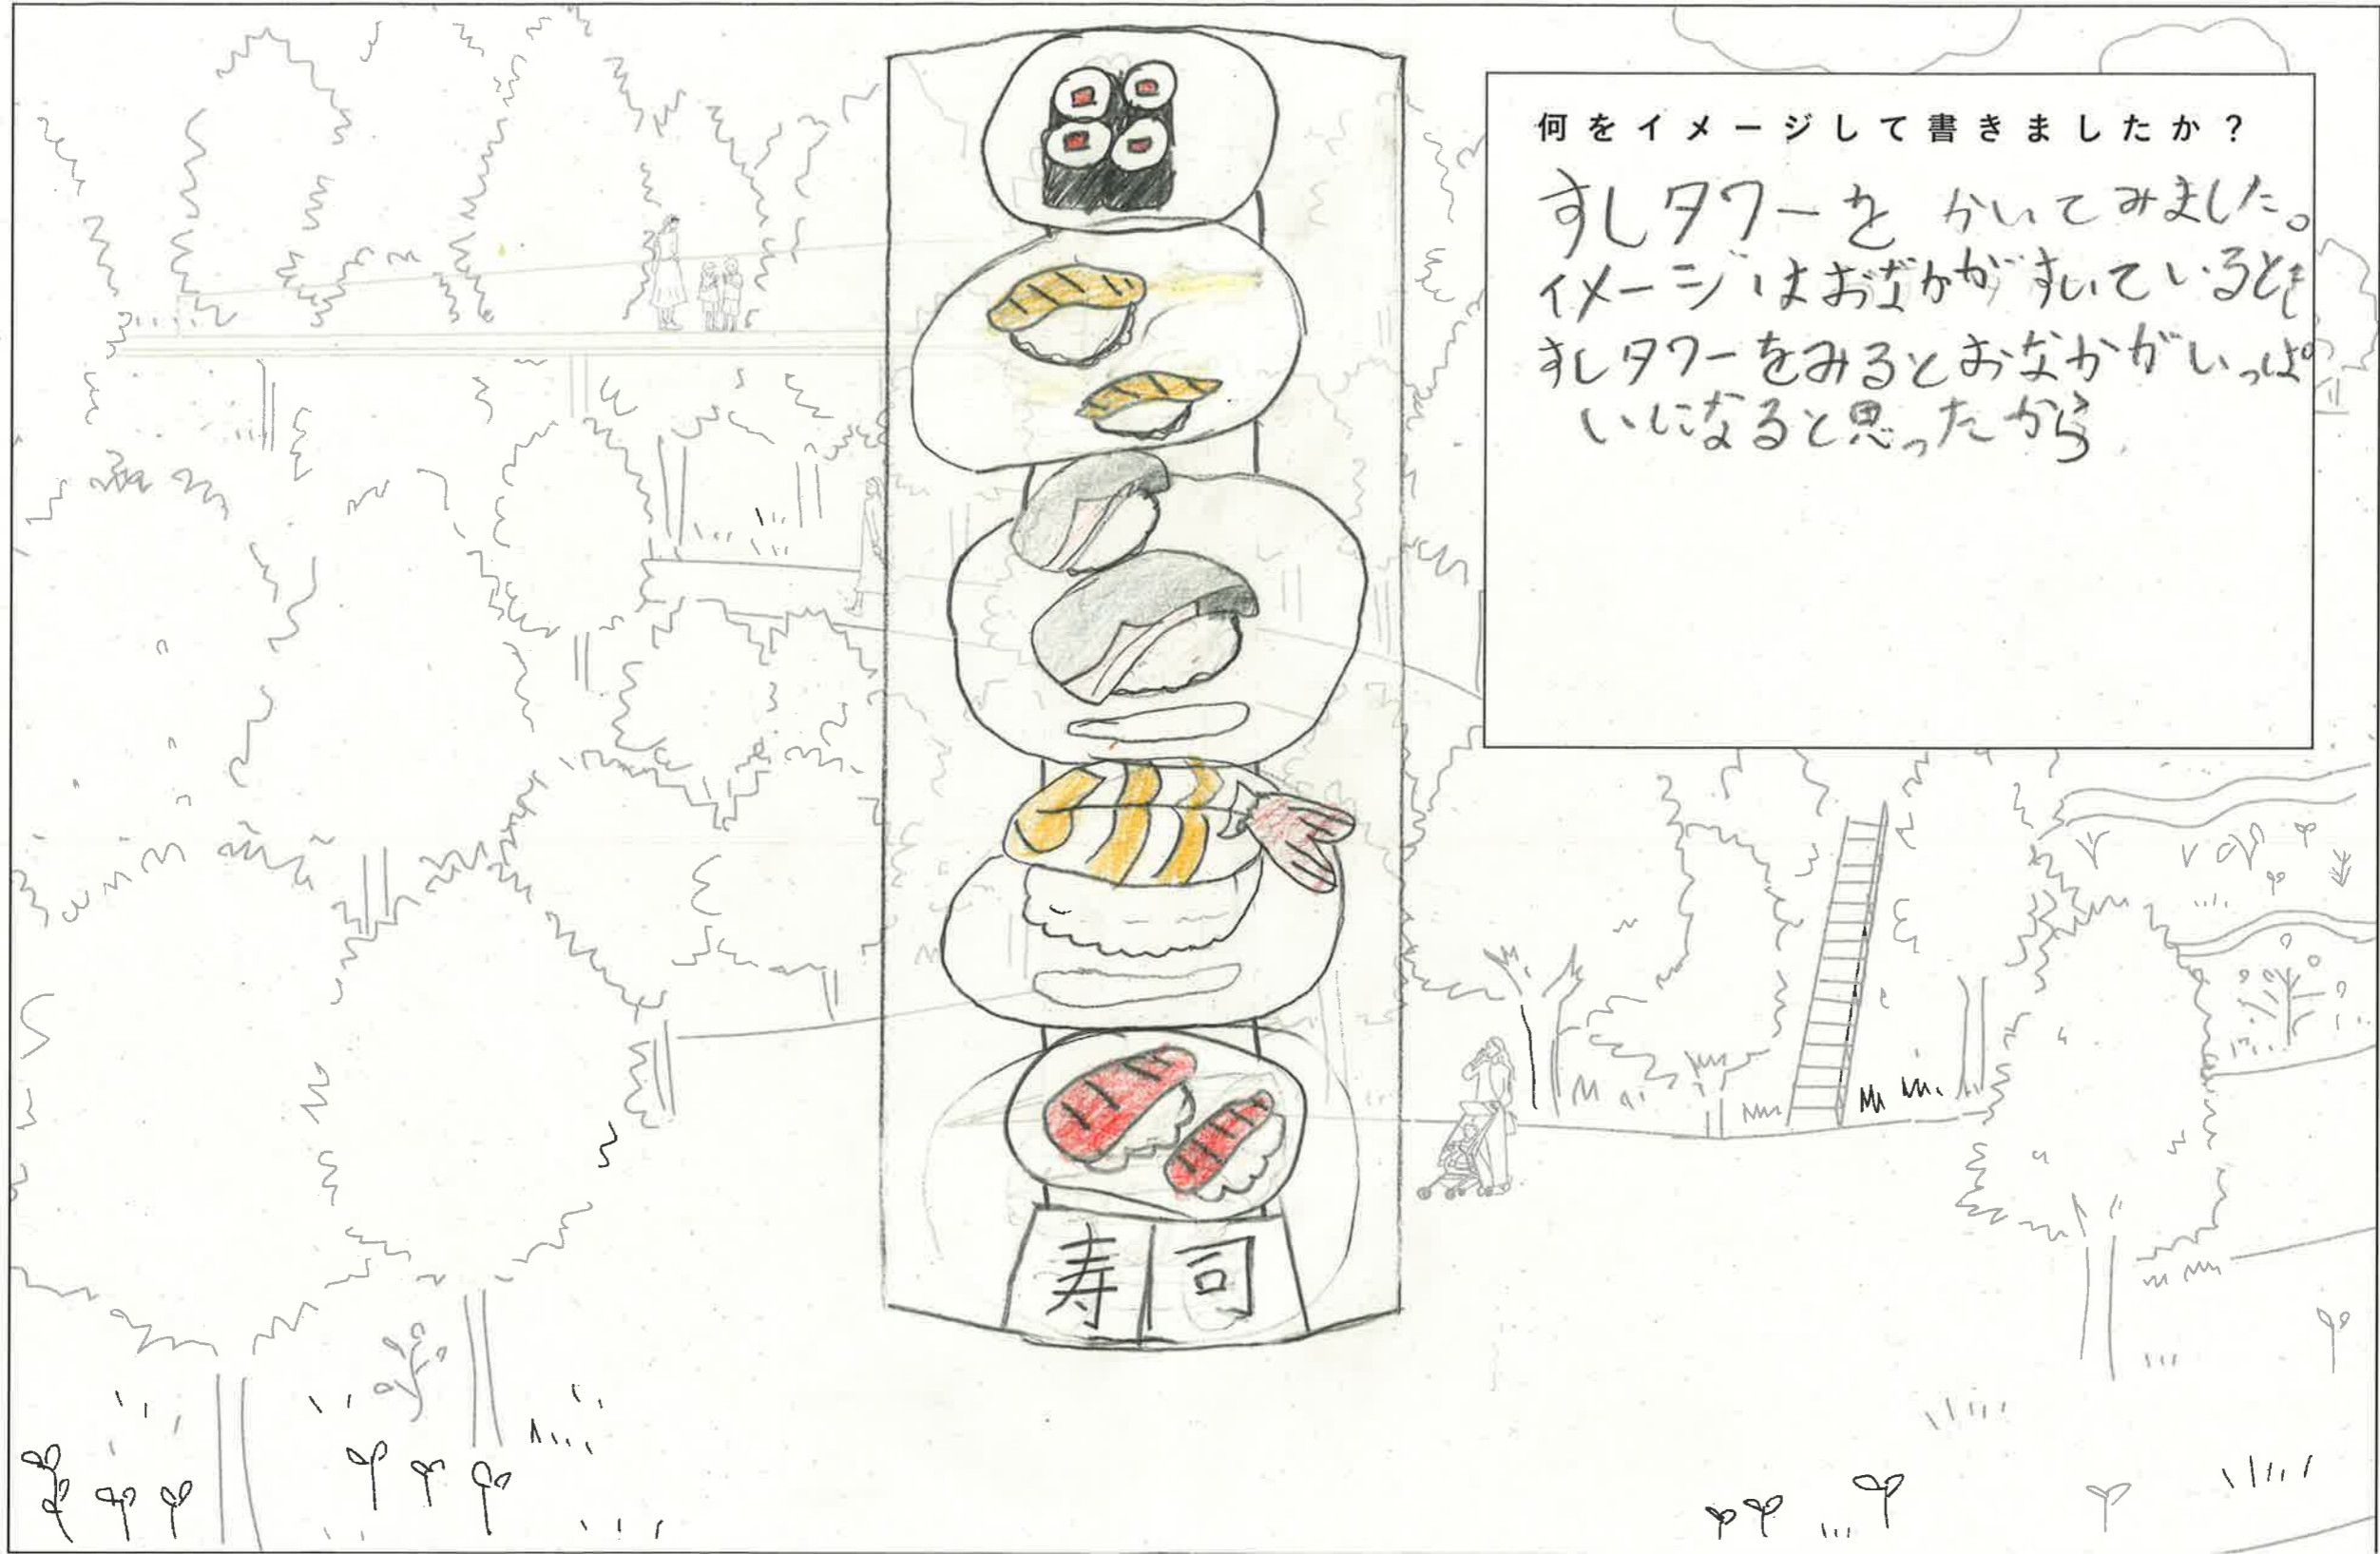 何をイメージして書きましたか？
すしタワーを かいてみました。
イメージはおなかがすいているとき
すしタワーをみるとおなかがいっぱ
いになると思ったから
寿司